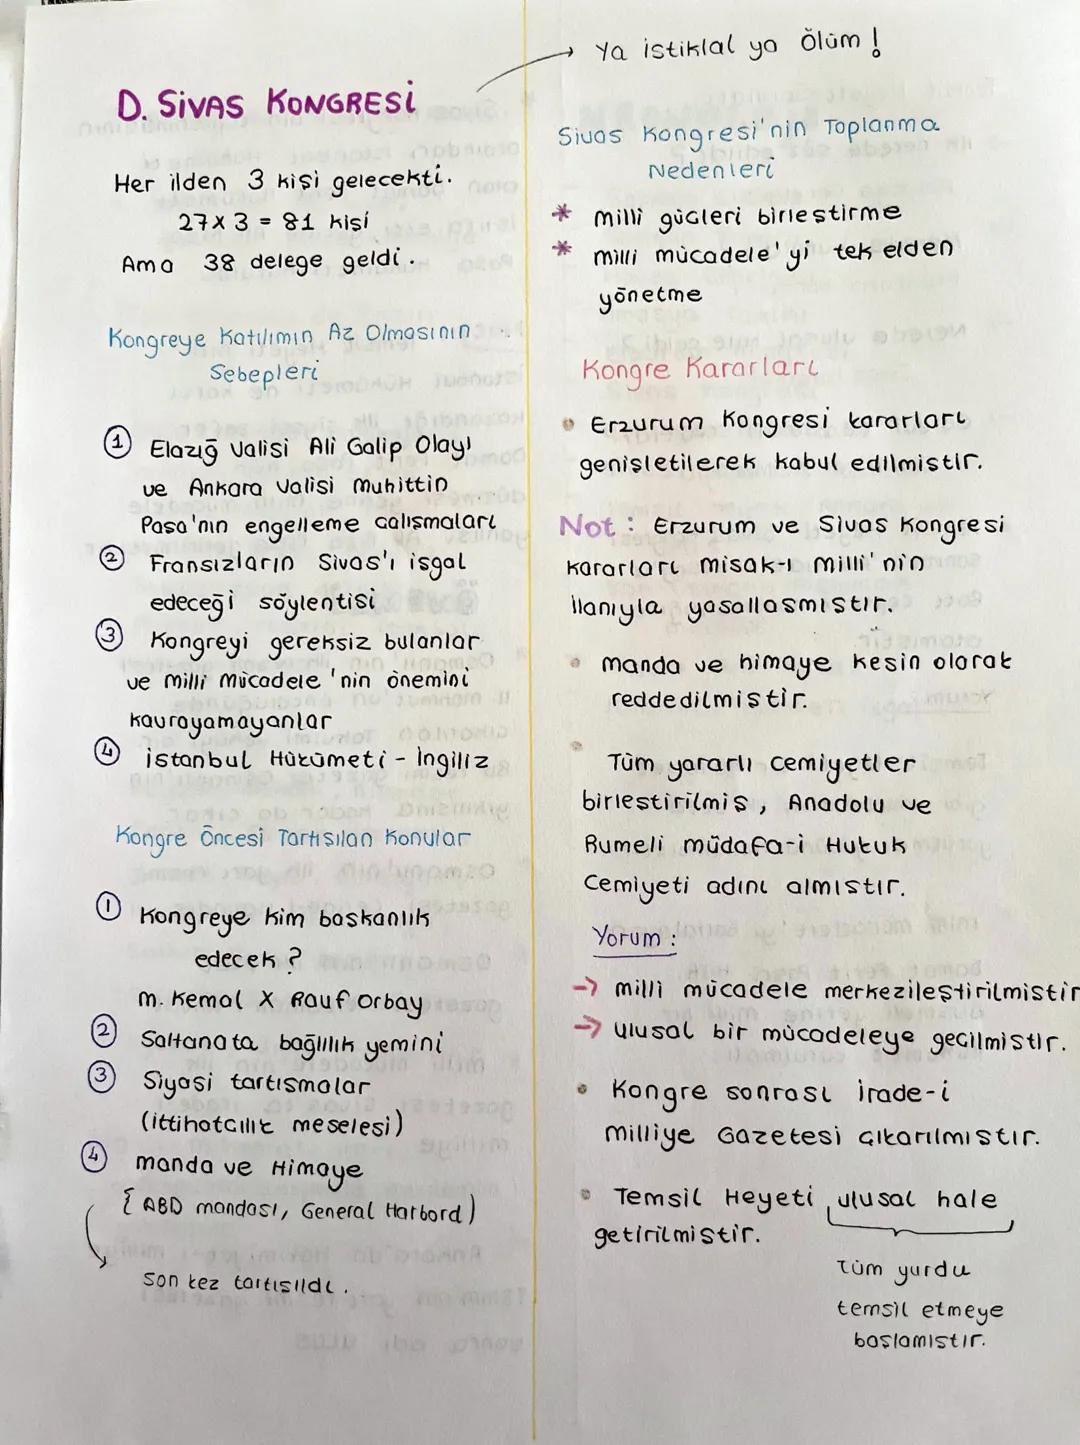 D. SİVAS KONGRESİ
Her ilden 3 kişi gelecekti.
27x3 = 81 kişi
Ama 38 delege geldi.
Kongreye Katılımın Az Olmasının
Sebepleri
① Elazığ Valisi Ali Galip Olayı
ve Ankara Valisi Muhittin
Paşa'nın engelleme çalışmaları
② Fransızların Sivas'ı işgal
edeceği söylentisi
③ Kongreyi gereksiz bulanlar
ve Milli Mücadele'nin önemini
kavrayamayanlar
④ İstanbul Hükümeti - İngiliz
Kongre Öncesi Tartışılan Konular
① Kongreye kim başkanlık
edecek ?
M. Kemal X Rauf Orbay
② Saltanata bağlılık yemini
③ Siyasi tartışmalar
(ittihatcılık meselesi)
④ manda ve Himaye
{ ABD mandası, General Harbord )
Son kez tartışıldı.
→ Ya istiklal ya Ölüm !
Sivas Kongresi'nin Toplanma
Nedenleri
* milli güçleri birleştirme
* milli mücadele'yi tek elden
yönetme
Kongre Kararları
• Erzurum Kongresi kararları
genişletilerek kabul edilmiştir.
Not : Erzurum ve Sivas Kongresi
kararları misak-ı milli'nin
ilanıyla yasallaşmıştır.
• manda ve himaye kesin olarak
reddedilmiştir.
• Tüm yararlı cemiyetler
birleştirilmiş, Anadolu ve
Rumeli müdafa-i Hukuk
Cemiyeti adını almıştır.
Yorum :
→ milli mücadele merkezileştirilmiştir
→ Ulusal bir mücadeleye geçilmiştir.
• Kongre sonrası İrade-i
Milliye Gazetesi çıkarılmıştır.
• Temsil Heyeti, ulusal hale
getirilmiştir.
Tüm yurdu
temsil etmeye
başlamıştır.